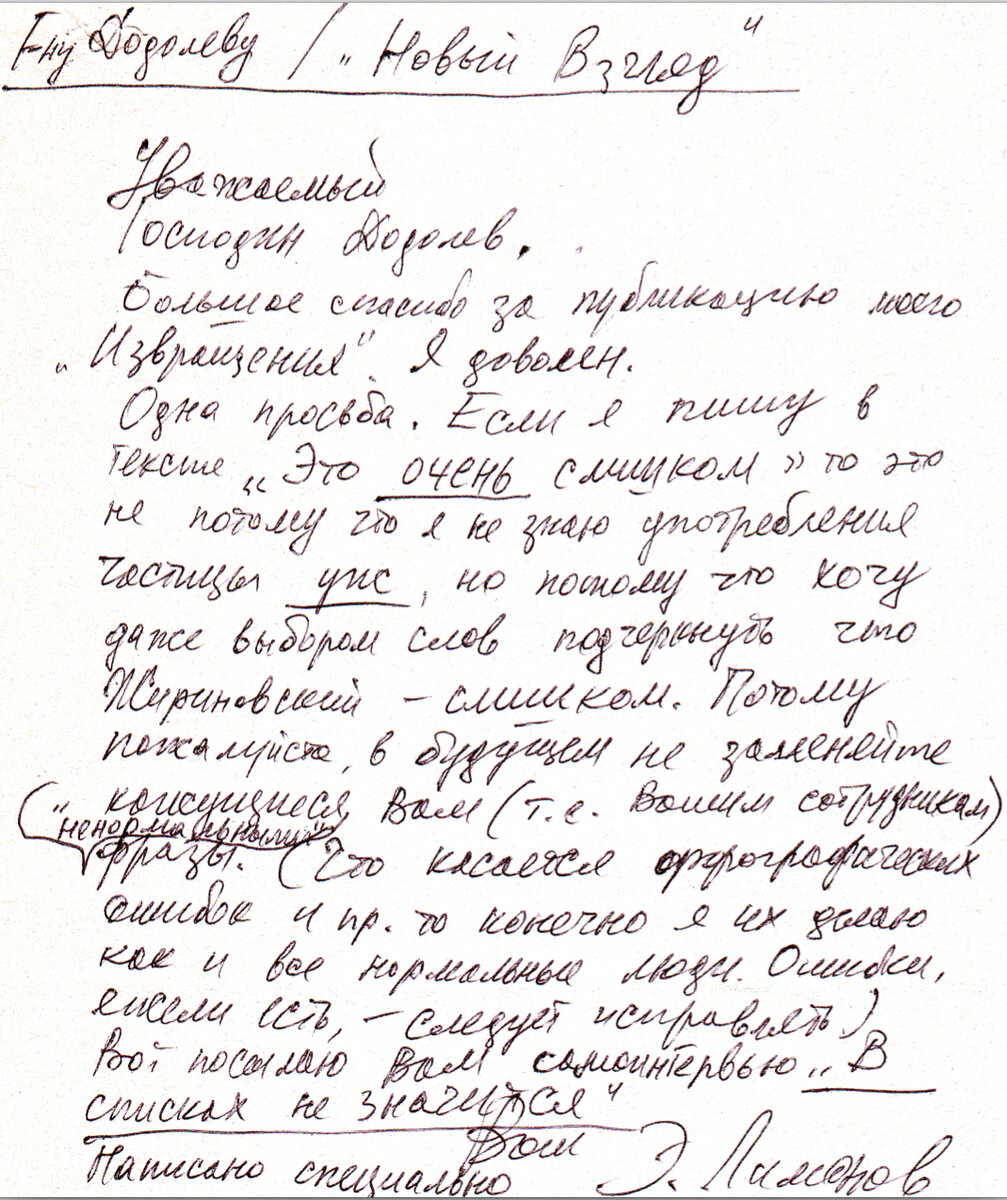 Г-ну Додолеву / „Новый Взгляд"
Уважаемый
Господин Додолев.
Большое спасибо за публикацию моего
„Извращения". Я доволен.
Одна просьба. Если я пишу в
тексте „Это очень слишком» то это
не потому что я не знаю употребления
частицы уж, но потому что хочу
даже выбором слов подчеркнуть что
Жириновский – слишком. Потому
пожалуйста, в будущем не заменяйте
кажущиеся Вам (т.е. Вашим сотрудникам)
(„ненормальными"
фразы. (Что касается орфографических
ошибок и пр. то конечно я их делаю
как и все нормальные люди. Ошибки,
ежели есть, – следует исправлять)
Вот посылаю Вам самоинтервью „В
списках не значится"
Ваш
Написано специально Э. Лимонов